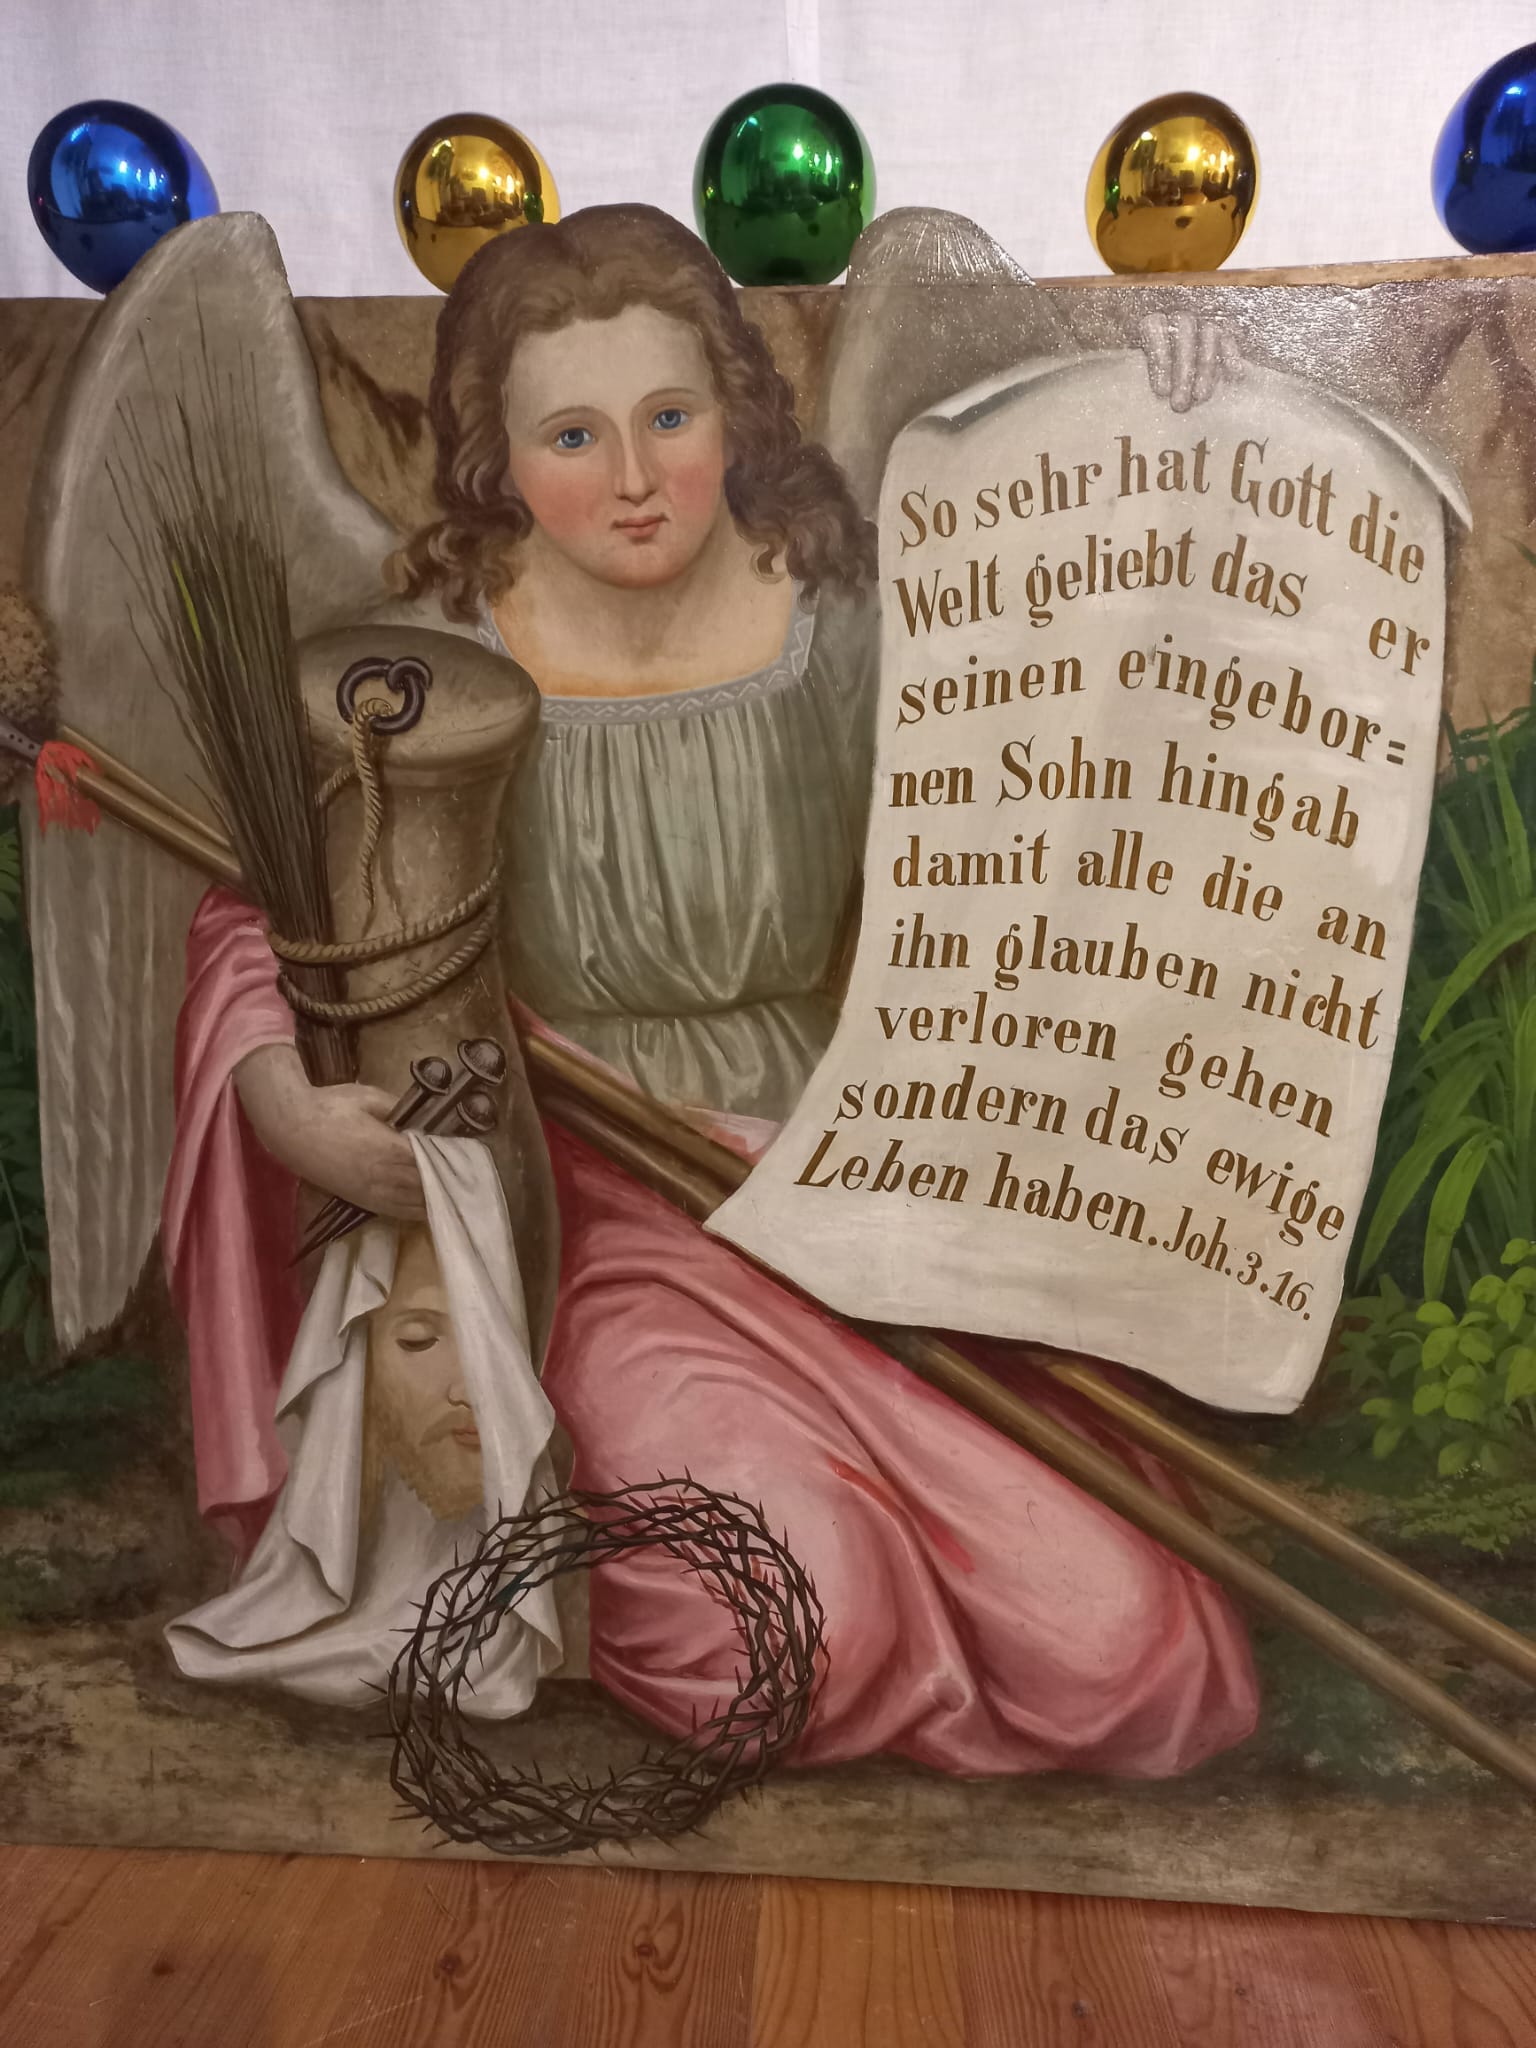 So sehr hat Gott die
Welt geliebt das er
seinen eingebor=
nen Sohn hingab
damit alle die an
ihn glauben nicht
verloren gehen
sondern das ewige
Leben haben. Joh. 3. 16.